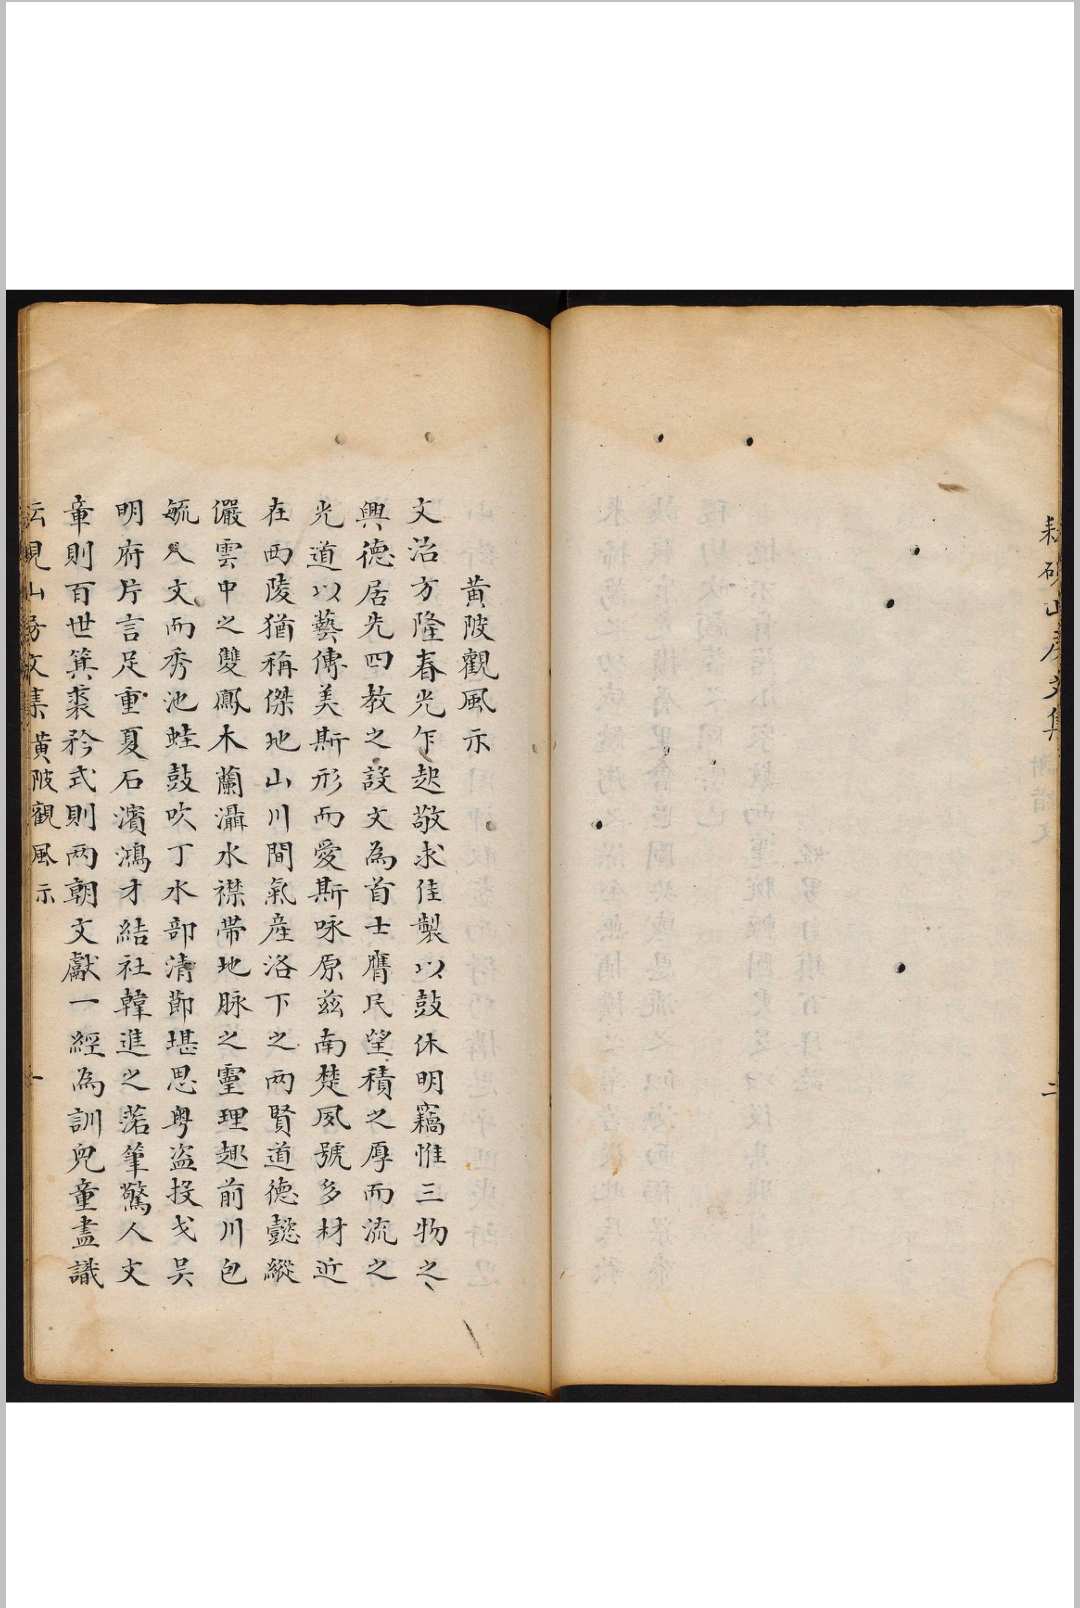 耕硯山房文集
二
黃陂觀風示
文治方隆春光乍起敬求佳製以鼓休明竊惟三物之
興德居先四教之設文為首士膺民望積之厚而流之
光道以藝傳美斯形而愛斯咏原兹南楚夙號多材近
在西陵猶稱傑地山川間氣產洛下之兩賢道德懿縱
儼雲中之雙鳳木蘭灄水襟帶地脉之靈理趣前川包
毓人文而秀池蛙鼓吹丁水部清節堪思粤盗投戈吴
明府片言足重夏石濱鴻才結社韓進之落筆驚人文
章則百世箕裘矜式則兩朝文獻一經為訓兒童盡識
耘硯山房文集 黃陂觀風示 一